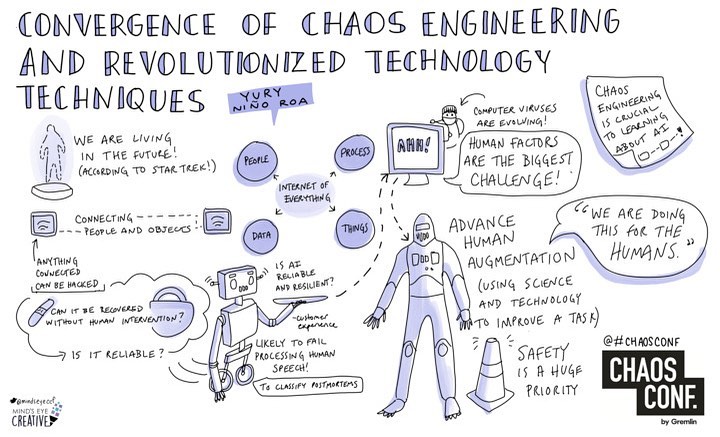 CONVERGENCE OF CHAOS ENGINEERING
AND REVOLUTIONIZED TECHNOLOGY
TECHNIQUES
YURY
NIÑO ROA
WE ARE LIVING
IN THE FUTURE!
(ACCORDING TO STAR TREK!)
CONNECTING
PEOPLE AND OBJECTS
ANYTHING
CONNECTED
CAN BE HACKED
CAN IT BE RECOVERED
WITHOUT HUMAN INTERVENTION?
IS IT RELIABLE?
PEOPLE
PROCESS
INTERNET OF
EVERYTHING
DATA
THINGS
IS AI
RELIABLE
AND RESILIENT?
-customer
experience
LIKELY TO FAIL
PROCESSING HUMAN
SPEECH!
TO CLASSIFY POSTMORTEMS
AHH!
COMPUTER VIRUSES
ARE EVOLVING!
HUMAN FACTORS
ARE THE BIGGEST
CHALLENGE!
CHAOS
ENGINEERING
IS CRUCIAL
TO LEARNING
ABOUT AI
ADVANCE
HUMAN
AUGMENTATION
(USING SCIENCE
AND TECHNOLOGY
TO IMPROVE A TASK)
"WE ARE DOING
THIS FOR THE
HUMANS."
SAFETY
IS A HUGE
PRIORITY
@#CHAOSCONF
CHAOS
CONF.
by Gremlin
@mindseyeccf
MIND'S EYE
CREATIVE